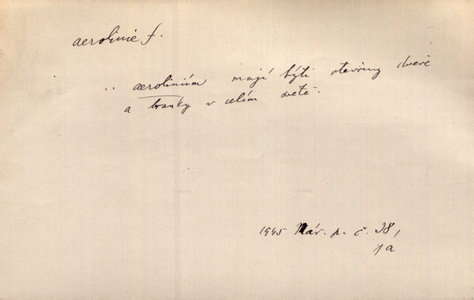 aerolinie f.
.. aeroliniím mají býti otevřeny dveře
a branky v celém světě.
1945 Nár. p. č. 38,
1a